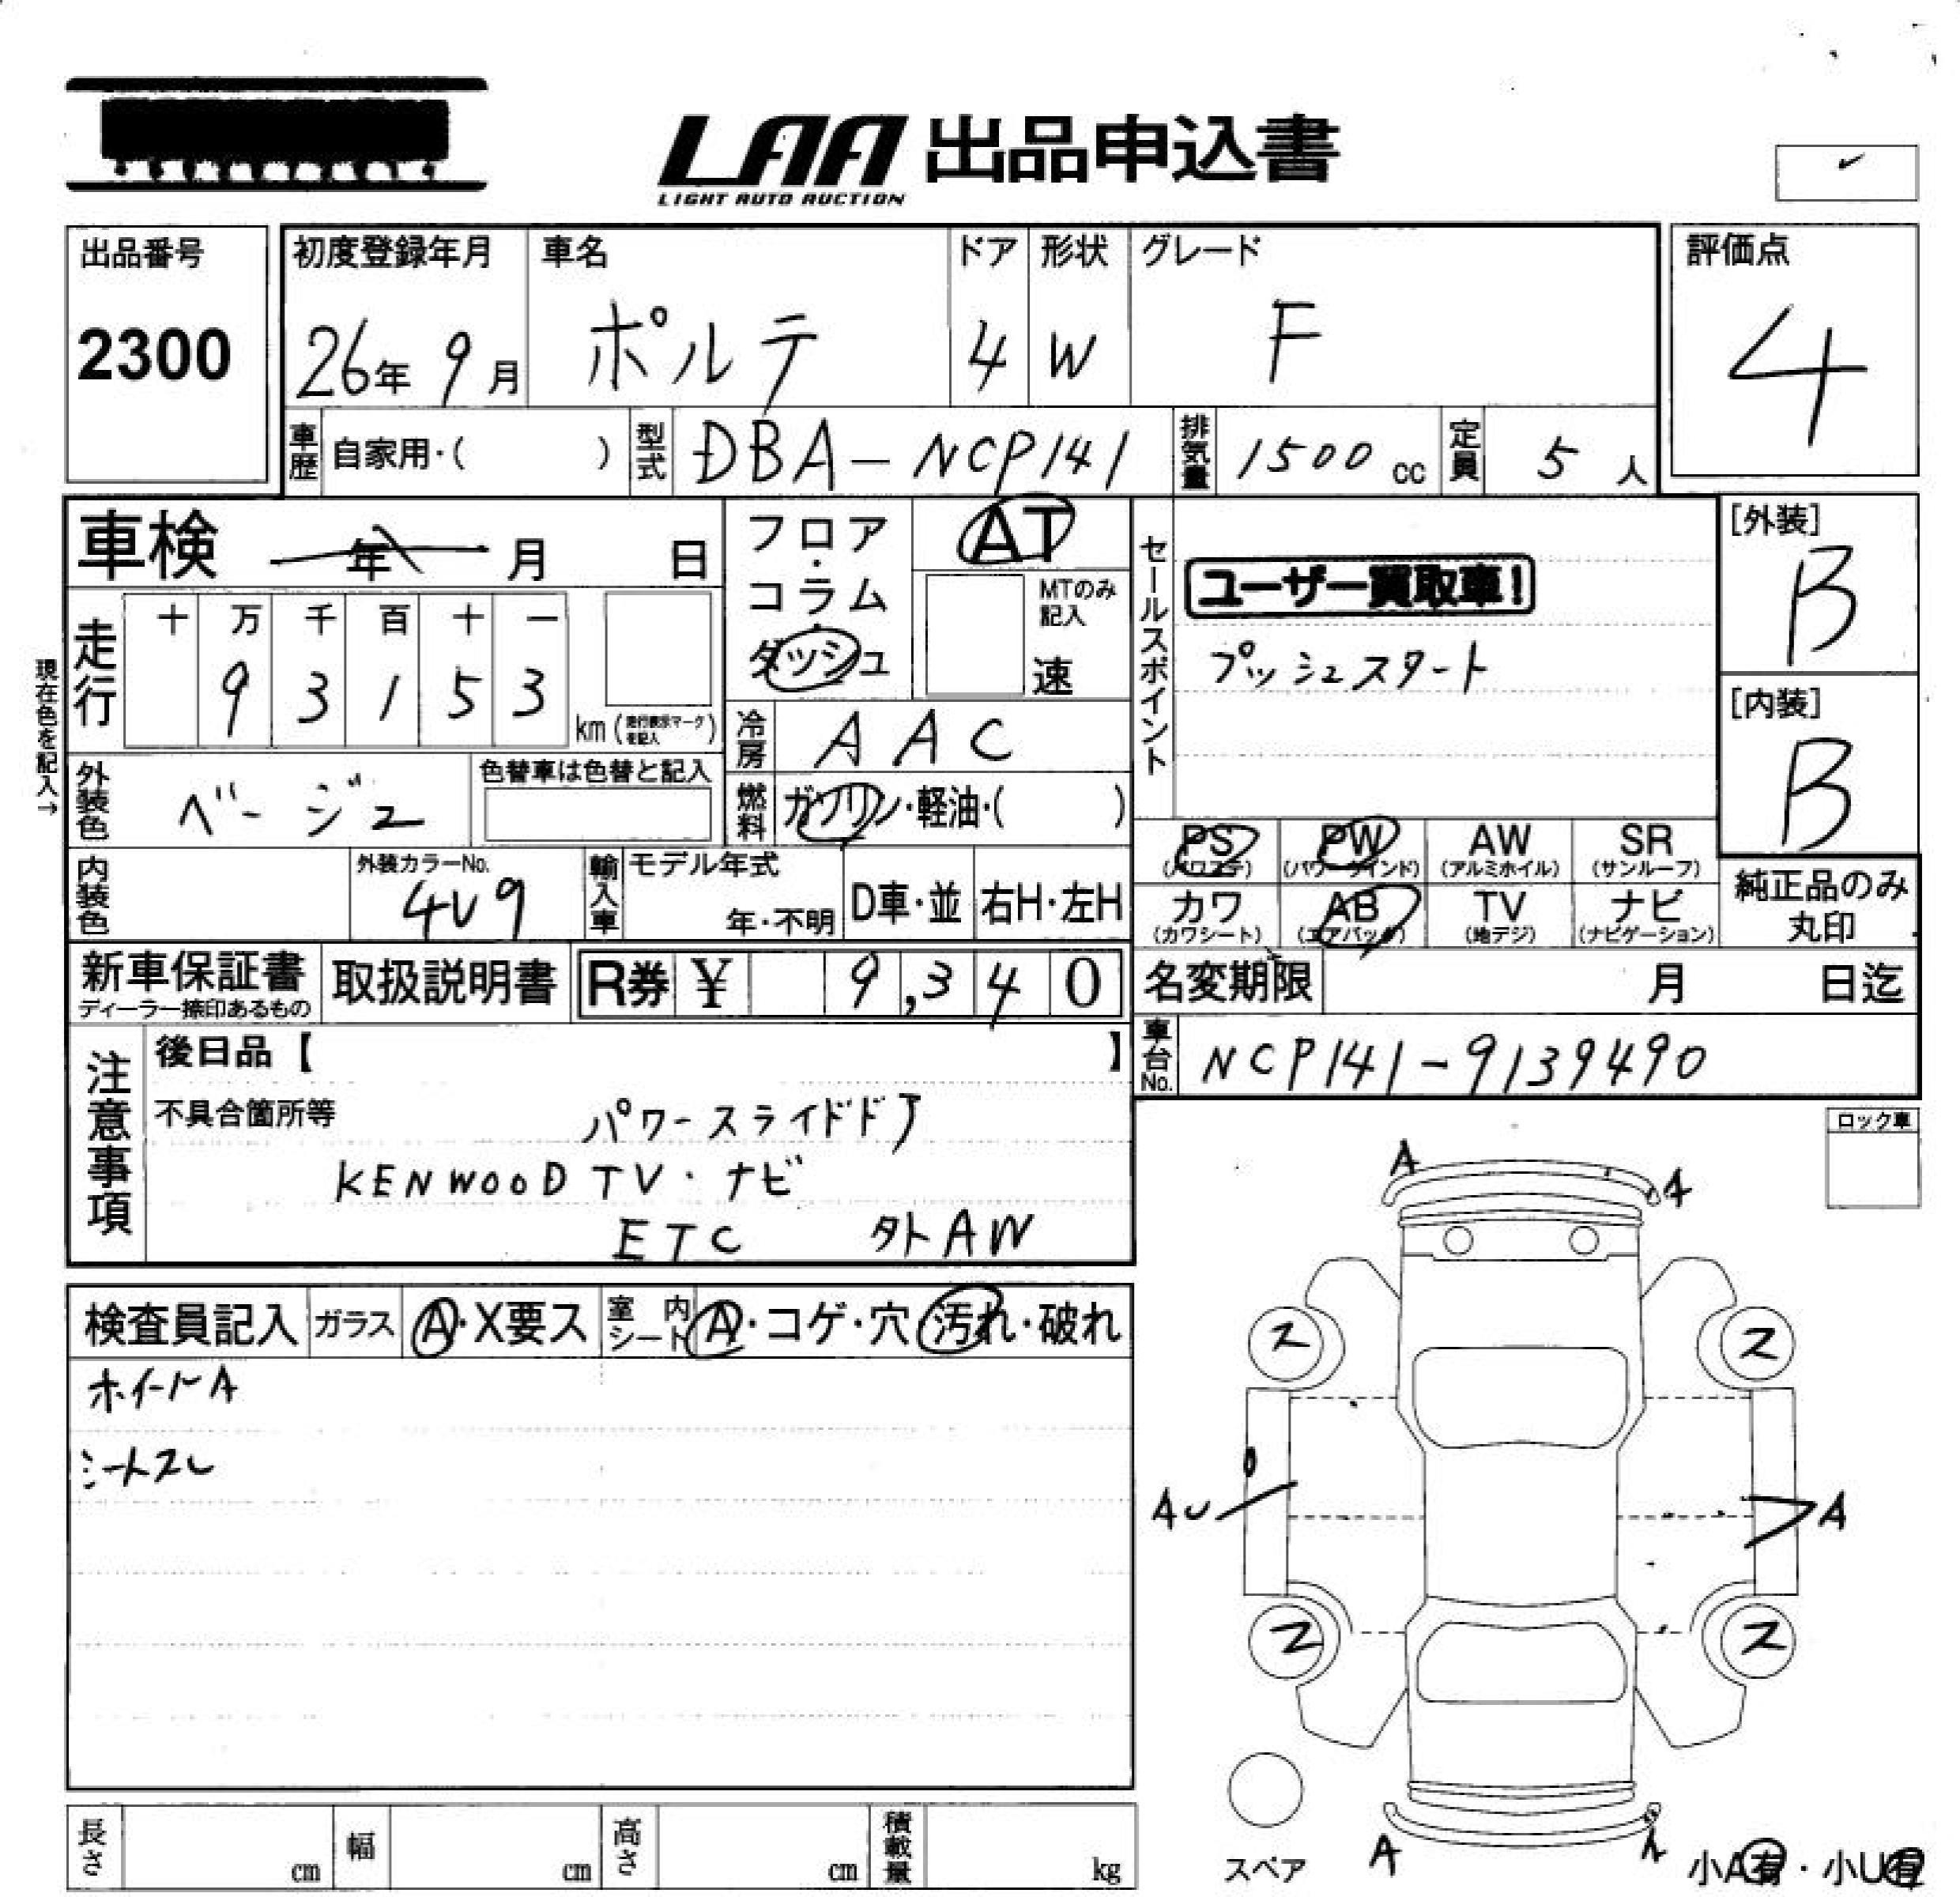 LAA 出品申込書
LIGHT AUTO AUCTION
出品番号
2300
初度登録年月
26年 9月
車名
ポルテ
ドア
4
形状
W
グレード
F
評価点
4
車歴 自家用・( )
型式 DBA-NCP141
排気量 1500 cc
定員 5 人
車検 年 月 日
現在色を記入→
走行
十 万 千 百 十 一
9 3 1 5 3
km (走行表示マークを記入)
フロア・コラム・ダッシュ
AT
MTのみ記入
速
冷房 AAC
燃料 ガソリン・軽油・( )
外装色 ベージュ
色替車は色替と記入
内装色
外装カラーNo.
4V9
輸入車 モデル年式
年・不明
D車・並
右H・左H
セールスポイント
ユーザー買取車!
プッシュスタート
[外装]
B
[内装]
B
PS (パワステ)
PW (パワーウインド)
AW (アルミホイル)
SR (サンルーフ)
カワ (カワシート)
AB (エアバック)
TV (地デジ)
ナビ (ナビゲーション)
純正品のみ
丸印
新車保証書
ディーラー捺印あるもの
取扱説明書
R券 ¥ 9,340
名変期限 月 日迄
車台No. NCP141-9139490
注意事項
後日品【 】
不具合箇所等
パワースライドドア
KENWOOD TV・ナビ
ETC 外AW
ロック車
検査員記入
ガラス A・X要ス
室内シート A・コゲ・穴・汚れ・破れ
ホイールA
シートスレ
A
A
ス
ス
AU
A
ス
ス
スペア
A
A
小A有・小U有
長さ cm
幅 cm
高さ cm
積載量 kg